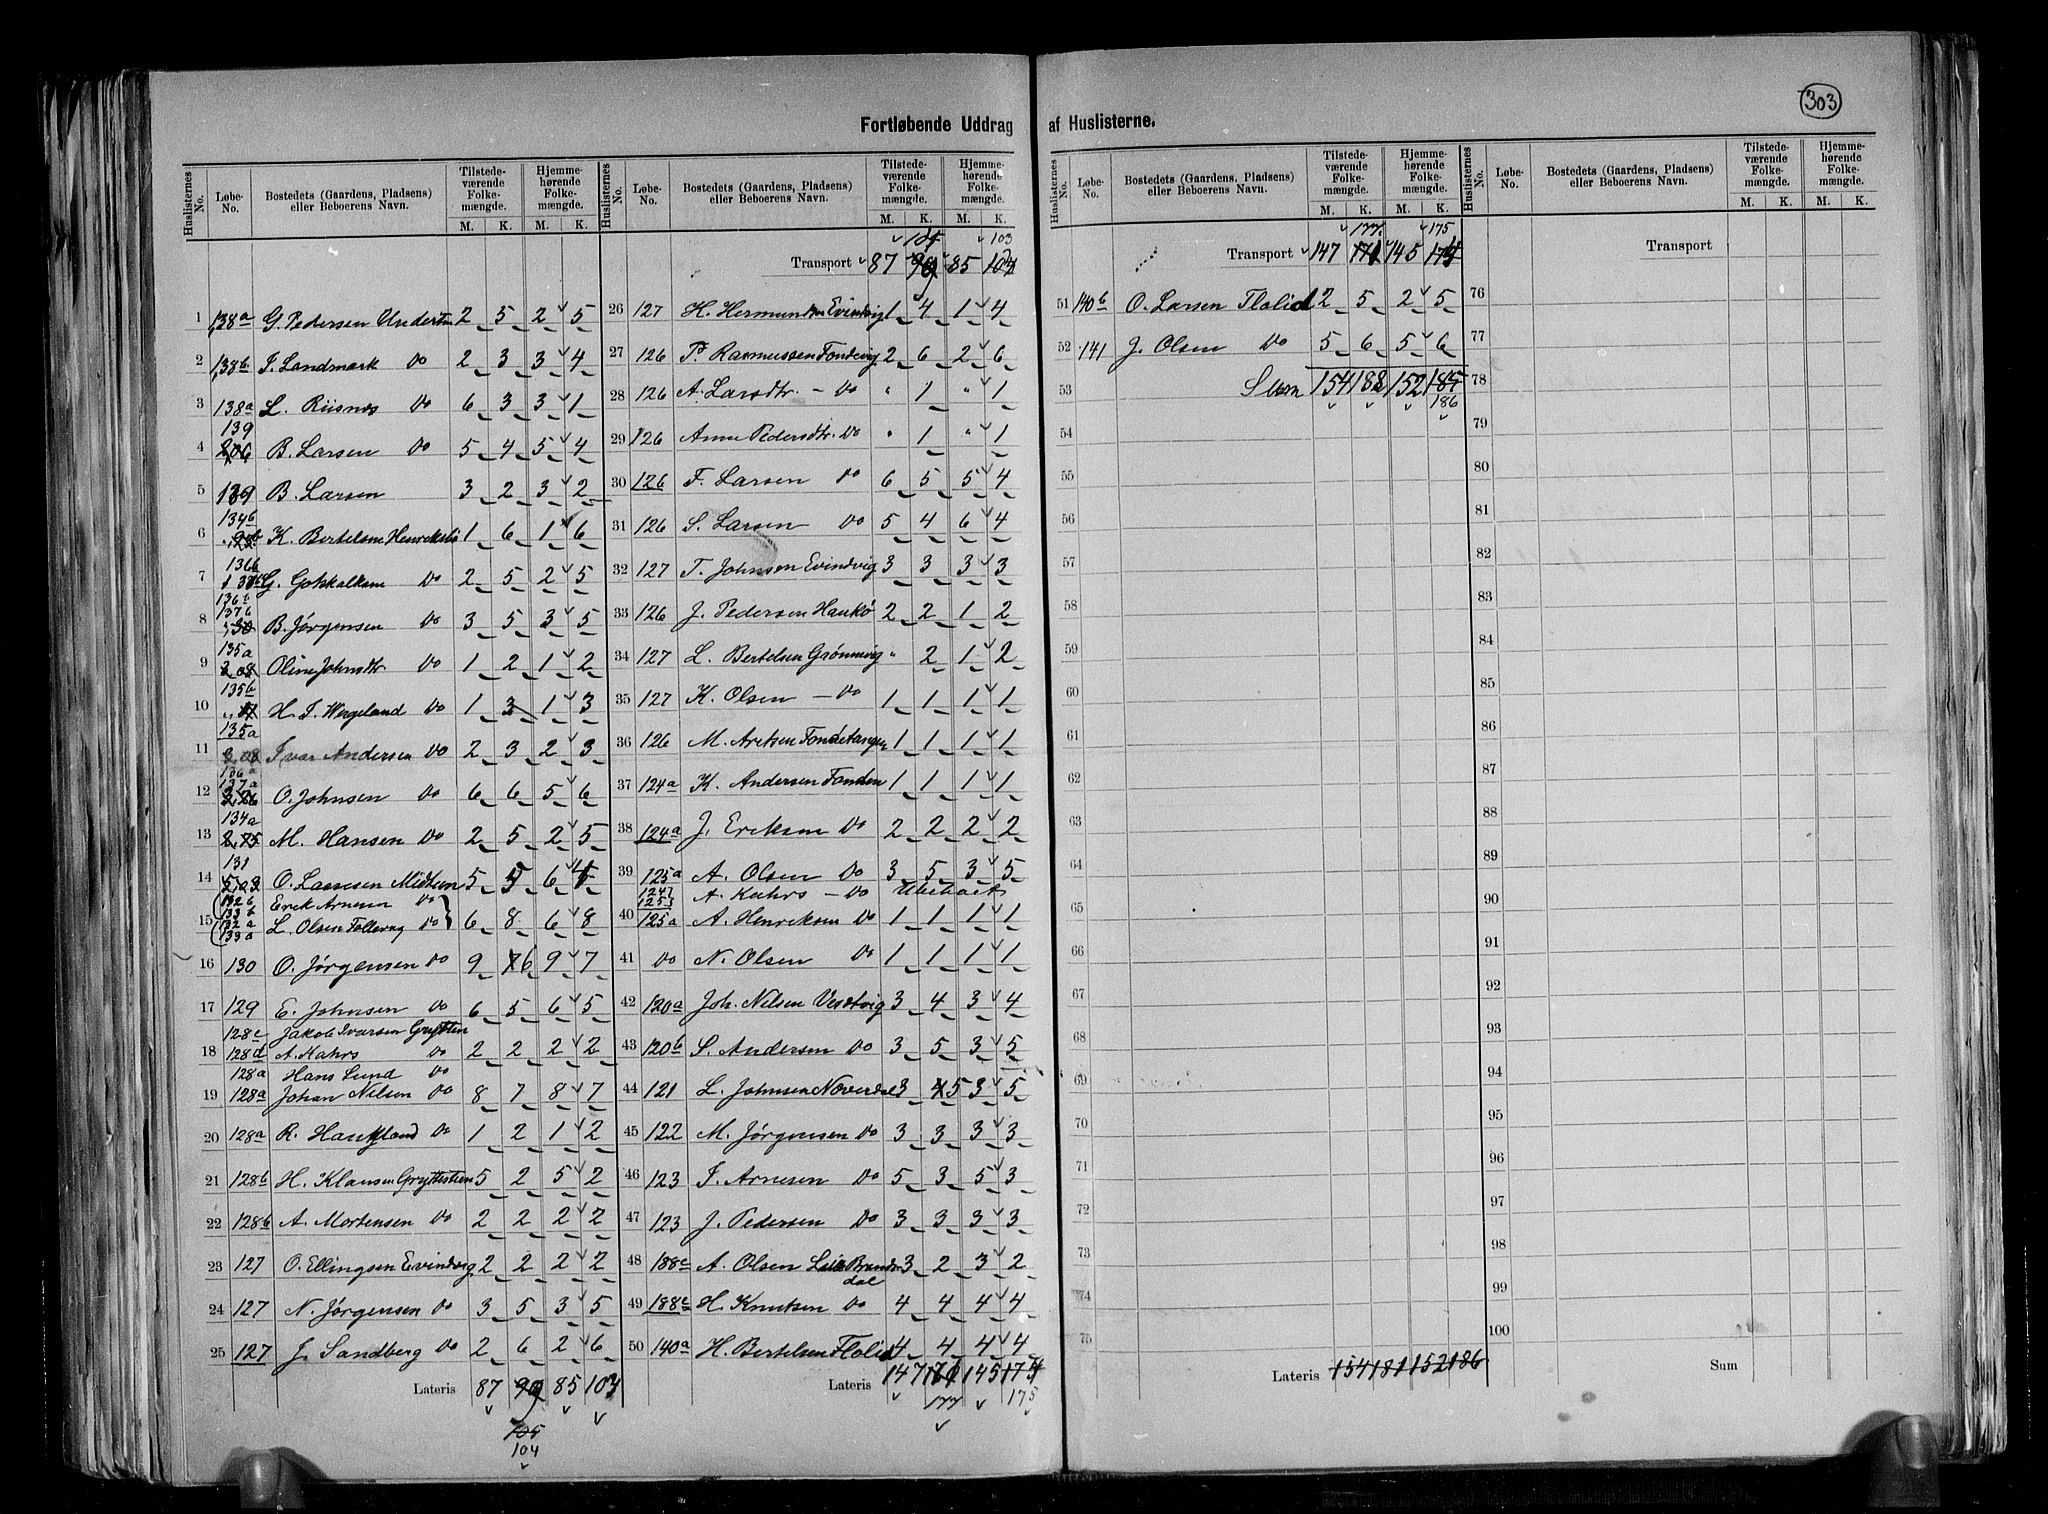 303
Fortløbende Uddrag af Huslisterne.
Huslisternes No. Løbe-No. Bostedets (Gaardens, Pladsens) eller Beboerens Navn. Tilstedeværende Folkemængde. Hjemmehørende Folkemængde.
M. K. M. K.
1 138a G. Pedersen 2 5 2 5
2 138b I. Landmark Do 2 3 3 4
3 138a L. Riisnæs Do 6 3 3 1
4 139 B. Larsen Do 5 4 5 4
5 139 B. Larsen 3 2 3 2
6 134b K. Bertelsen Henriksbö 1 6 1 6
7 136b G. Do 2 5 2 5
8 136b 137b B. Jørgensen Do 3 5 3 5
9 135a Oline Johnsdtr. Do 1 2 1 2
10 135b H. I. Wergeland Do 1 3 1 3
11 135a Ivar Andersen Do 2 3 2 3
12 136a 137a O. Johnsen Do 6 6 5 6
13 134a M. Hansen Do 2 5 2 5
14 131 O. Lassesen Midttun 5 5 6
15 132b 133b Erik Arnesen Do
132a 133a L. Olsen Do 6 8 6 8
16 130 O. Jørgensen Do 9 6 9 7
17 129 E. Johnsen Do 6 5 6 5
128c Jakob Iversen
18 128d A. Kahrs Do 2 2 2 2
128a Hans Lund Do
19 128a Johan Nilsen Do 8 7 8 7
20 128a R. Haukland Do 1 2 1 2
21 128b H. Klausen Gryttestien 5 2 5 2
22 128b A. Mortensen Do 2 2 2 2
23 127 O. Ellingsen Evindvig 2 2 2 2
24 127 N. Jørgensen Do 3 5 3 5
25 127 J. Sandberg Do 2 6 2 6
Lateris 87 85 103
105
104
Huslisternes No. Løbe-No. Bostedets (Gaardens, Pladsens) eller Beboerens Navn. Tilstedeværende Folkemængde. Hjemmehørende Folkemængde.
M. K. M. K.
103
Transport 87 85
26 127 H. Hermundsen Evindvig 1 4 1 4
27 126 P. Rasmussen Fondevig 2 6 2 6
28 126 A. Larsdtr. — Do " 1 " 1
29 126 Anne Pedersdtr. Do " 1 " 1
30 126 F. Larsen Do 6 5 5 4
31 126 S. Larsen Do 5 4 6 4
32 127 T. Johnsen Evindvig 3 3 3 3
33 126 J. Pedersen Haukö 2 2 1 2
34 127 L. Bertelsen Grønnevig " 2 1 2
35 127 K. Olsen — Do 1 1 1 1
36 126 M. Aretsen Fondetangen 1 1 1 1
37 124a K. Andersen Fonden 1 1 1 1
38 124a J. Eriksen Do 2 2 2 2
39 125a A. Olsen Do 3 5 3 5
A. Kahrs — Do Ubeboet
40 125a A. Henriksen Do 1 1 1 1
41 Do N. Olsen Do 1 1 1 1
42 120a Joh. Nilsen 3 4 3 4
43 120b S. Andersen Do 3 5 3 5
44 121 L. Johnsen Noverdal 3 5 3 5
45 122 M. Jørgensen Do 3 3 3 3
46 123 I. Arnesen Do 5 3 5 3
47 123 J. Pedersen Do 3 3 3 3
48 188c A. Olsen Brandsdal 3 2 3 2
49 188c H. Knutsen Do 4 4 4 4
50 140a H. Bertelsen Flolid 4 4 4 4
Lateris 147 145
177 175
Huslisternes No. Løbe-No. Bostedets (Gaardens, Pladsens) eller Beboerens Navn. Tilstedeværende Folkemængde. Hjemmehørende Folkemængde.
M. K. M. K.
177. 175
Transport 147 145
51 140b O. Larsen Flolid 2 5 2 5
52 141 J. Olsen Do 5 6 5 6
53 Sum 154 188 152 185
186
54
55
56
57
58
59
60
61
62
63
64
65
66
67
68
69
70
71
72
73
74
75
Lateris 154 181 152 186
Huslisternes No. Løbe-No. Bostedets (Gaardens, Pladsens) eller Beboerens Navn. Tilstedeværende Folkemængde. Hjemmehørende Folkemængde.
M. K. M. K.
Transport
76
77
78
79
80
81
82
83
84
85
86
87
88
89
90
91
92
93
94
95
96
97
98
99
100
Sum